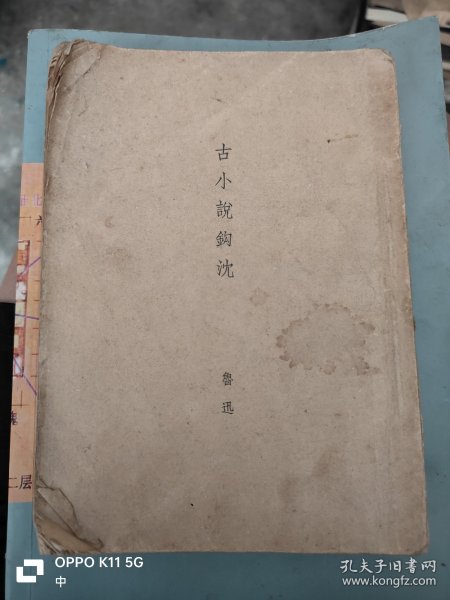 古小說鈎沈
魯迅
二层
OPPO K11 5G
中
孔夫子旧书网
www.kongfz.com